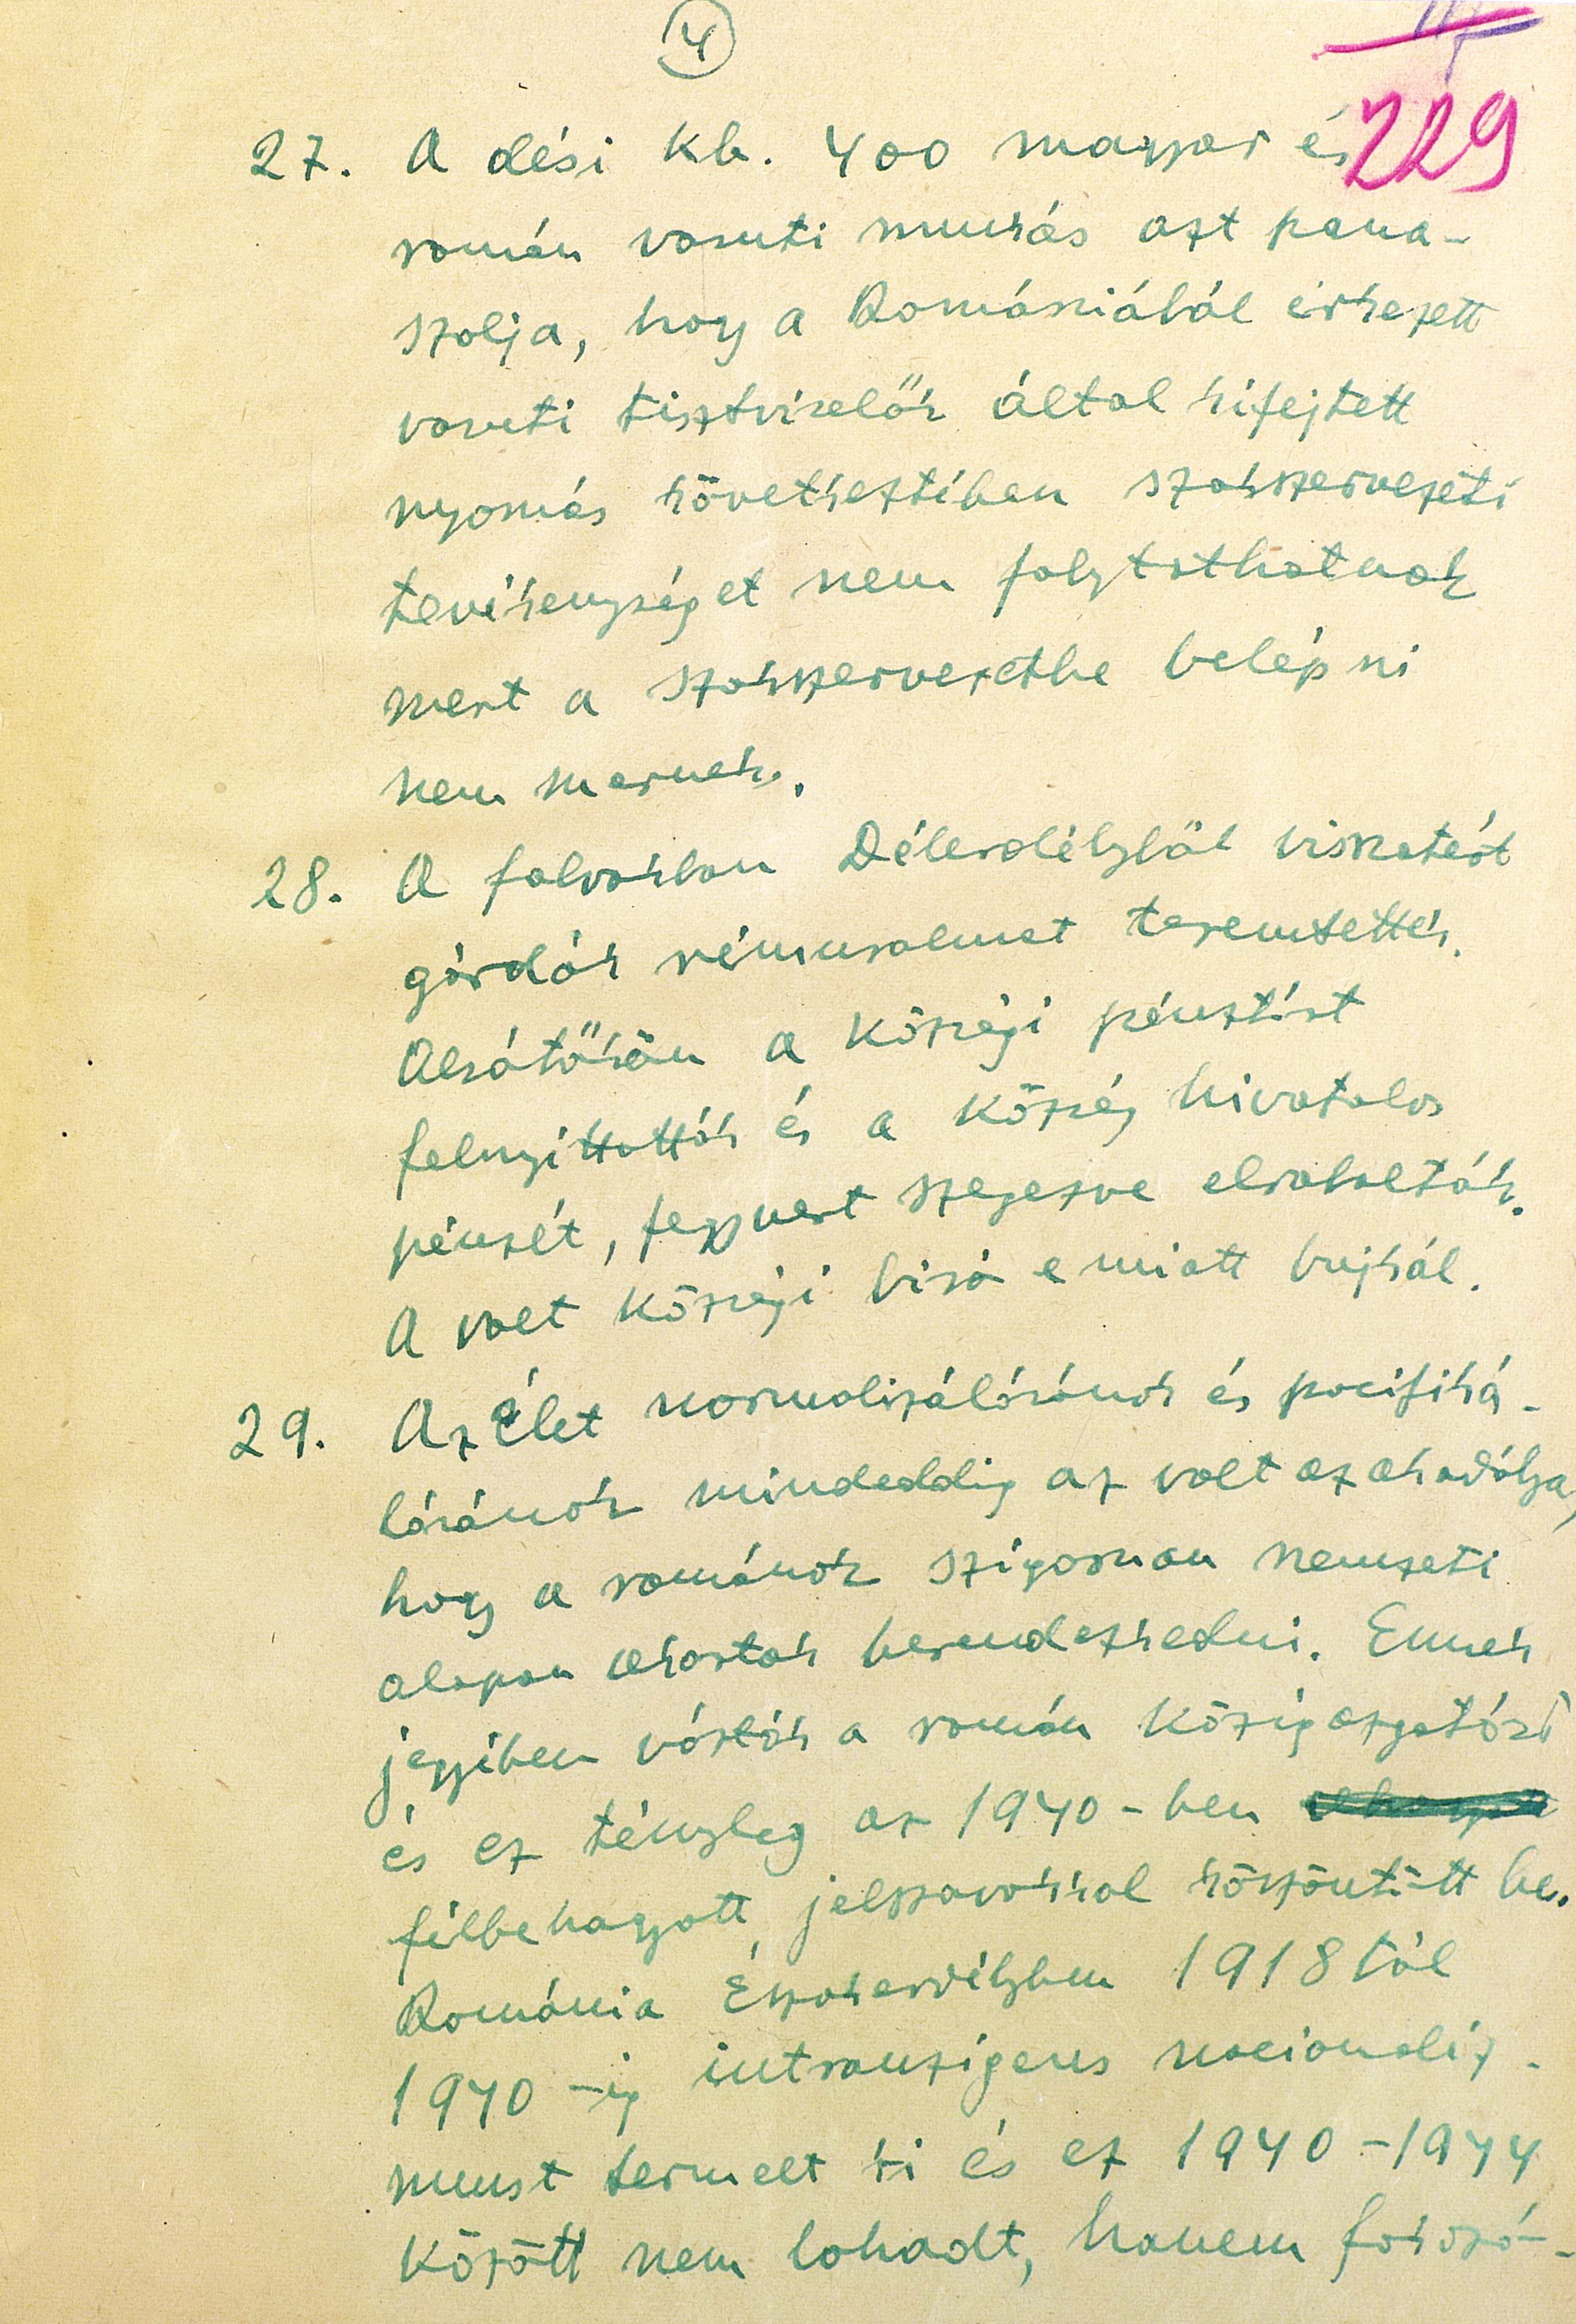 4
229
27. A dési kb. 400 magyar és
román vasuti munkás azt pana-
szolja, hogy a Romániából érkezett
vasuti tisztviselők által kifejtett
nyomás következtében szakszervezeti
tevékenységet nem folytathatnak
mert a szakszervezetbe belépni
nem mernek.
28. A falvakban Délerdélyből visszatért
gárdák rémuralmat teremtettek.
Alsótőkön a községi pénztárt
felnyittatták és a község hivatalos
pénzét, fegyvert szegezve elrabolták.
A volt községi biró emiatt bujkál.
29. Az élet normalizálásának és pacifiká-
lásának mindeddig az volt az akadálya,
hogy a románok szigoruan nemzeti
alapon akartak berendezkedni. Ennek
jegyében várták a román közigazgatást
és ez tényleg az 1940-ben
félbehagyott jelszavakkal köszöntött be.
Románia Északerdélyben 1918 tól
1940-ig intranzigens nacionaliz-
must termelt ki és ez 1940-1944
között nem lohadt, hanem fokozó-